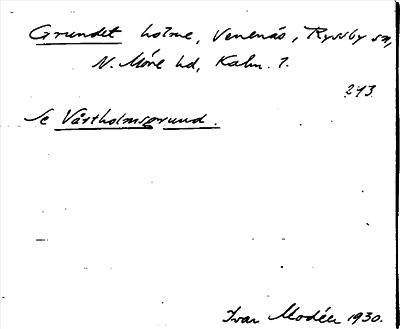 Grundet holme, Venenäs, Ryssby sn,
N. Möre hd, Kalm. l.
213.
Se Vårtholmsgrund.
Ivar Modéer 1930.